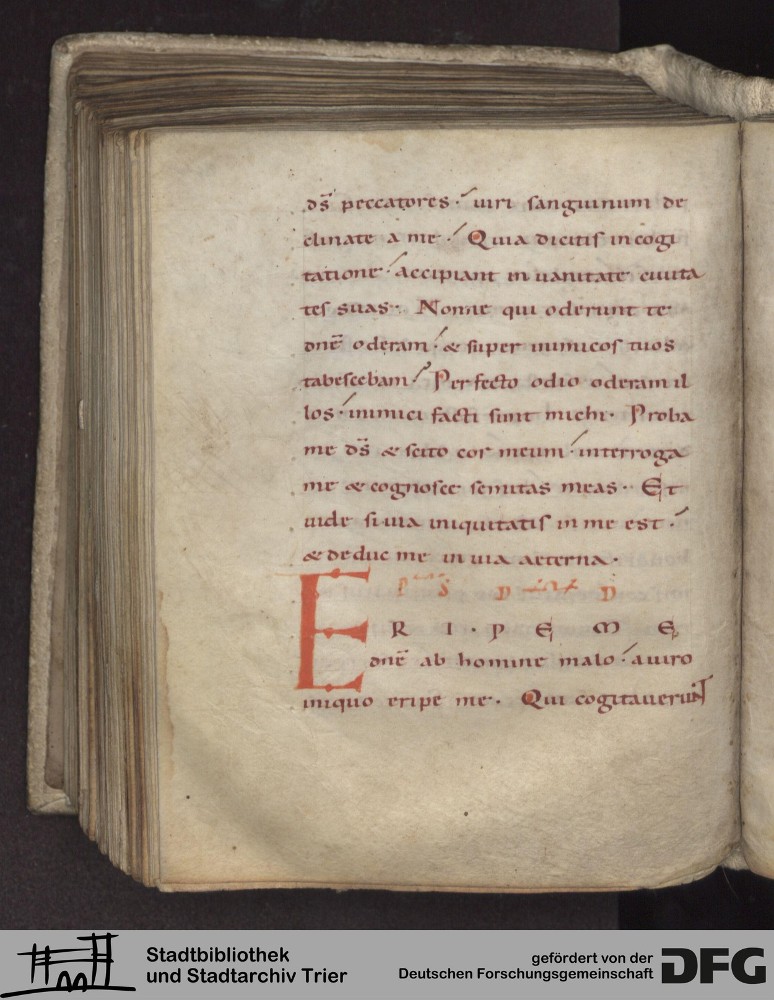 ds̄ peccatores · uiri sanguinum de
clinate a me · Quia dicitis in cogi
tatione · accipiant in uanitate ciuita
tes suas · Nonne qui oderunt te
dnē oderam · & super inimicos tuos
tabescebam · Perfecto odio oderam il
los · inimici facti sunt michi · Proba
me ds̄ & scito cor meum · interroga
me & cognosce semitas meas · Et
uide si uia iniquitatis in me est ·
& deduc me in uia aeterna ·
ERIPE ME
dnē ab homine malo · a uiro
iniquo eripe me · Qui cogitauerunt
Stadtbibliothek
und Stadtarchiv Trier
gefördert von der
Deutschen Forschungsgemeinschaft
DFG